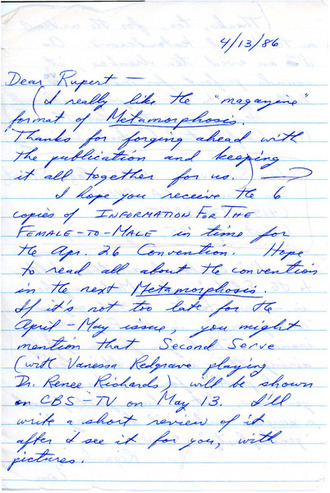 4/13/86
Dear Rupert —
(I really like the "magazine"
format of Metamorphosis.
Thanks for forging ahead with
the publication and keeping
it all together for us.) →
I hope you receive the 6
copies of INFORMATION FOR THE
FEMALE-TO-MALE in time for
the Apr. 26 Convention. Hope
to read all about the convention
in the next Metamorphosis.
If it's not too late for the
April-May issue, you might
mention that Second Serve
(with Vanessa Redgrave playing
Dr. Renee Richards) will be shown
on CBS-TV on May 13. I'll
write a short review of it
after I see it for you, with
pictures.